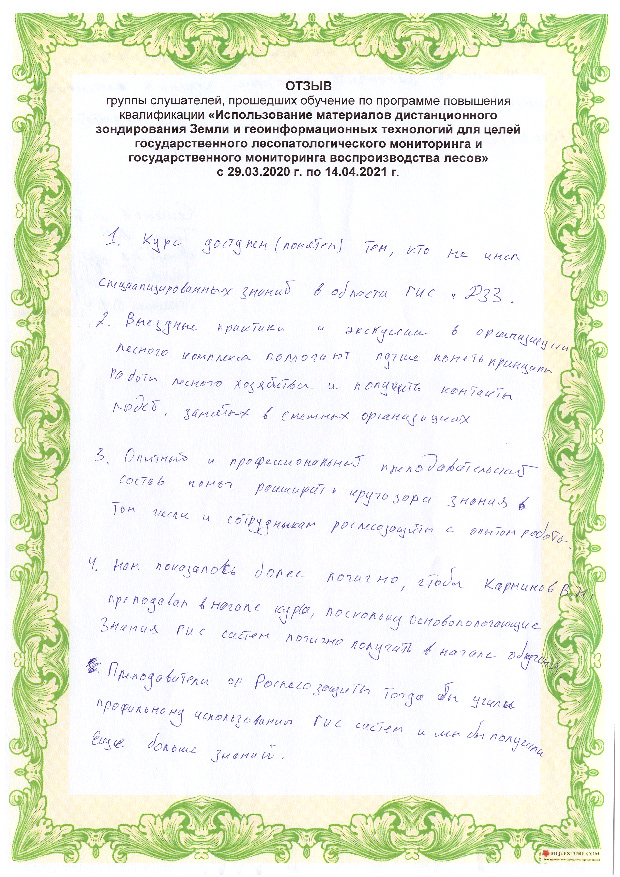 ОТЗЫВ
группы слушателей, прошедших обучение по программе повышения
квалификации «Использование материалов дистанционного
зондирования Земли и геоинформационных технологий для целей
государственного лесопатологического мониторинга и
государственного мониторинга воспроизводства лесов»
с 29.03.2020 г. по 14.04.2021 г.
1. Курс доступен (понятен) тем, кто не имел
специализированных знаний в области ГИС и ДЗЗ.
2. Выездные практики и экскурсии в организации
лесного комплекса помогают лучше понять принципы
работы лесного хозяйства и получить контакты
людей, занятых в смежных организациях
3. Опытный и профессиональный преподавательский
состав помог расширить кругозор и знания в
том числе и сотрудникам рослесозащиты с опытом работы.
4. Нам показалось более логично, чтобы В.Н.
преподавал в начале курса, поскольку основопологающие
знания ГИС систем логично получать в начале обучения
Преподаватели от Рослесозащиты тогда бы учили
профильному использованию ГИС систем и мы бы получили
еще больше знаний.